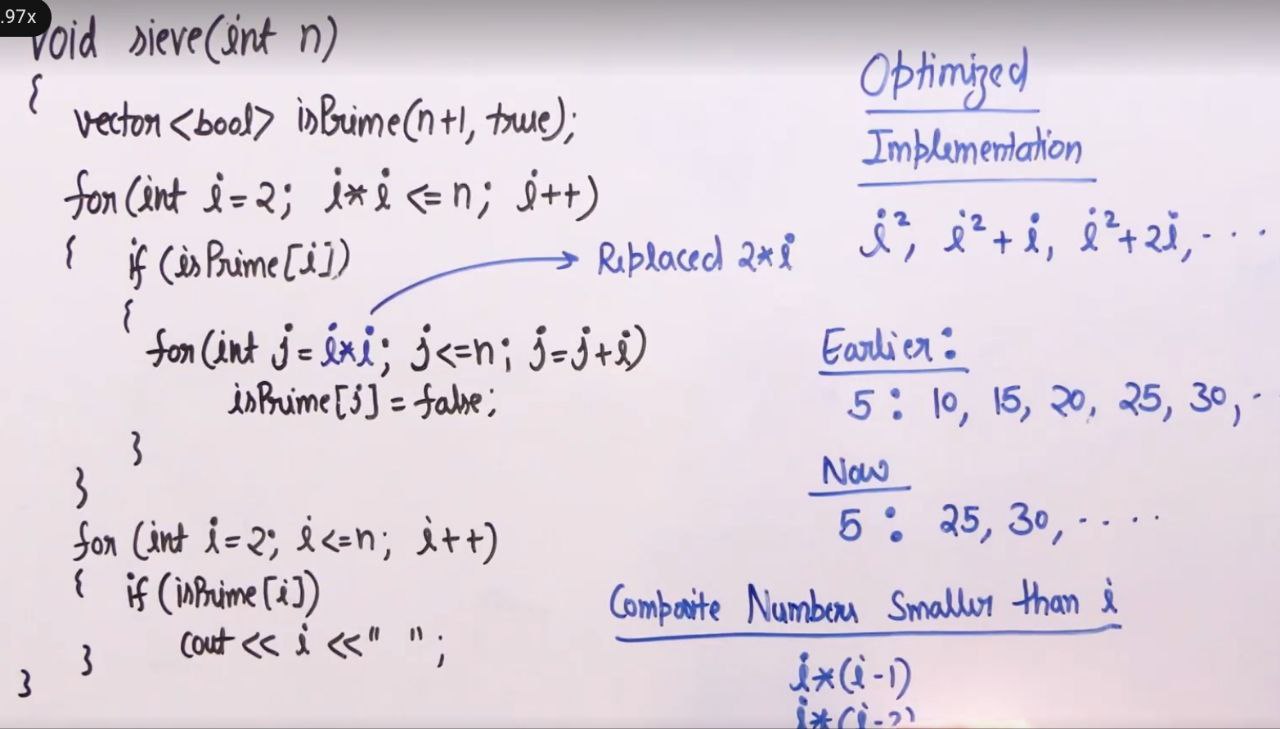 .97x
void sieve(int n)
{
vector<bool> isPrime(n+1, true);
for(int i=2; i*i <= n; i++)
{ if (isPrime[i])
{
for(int j = i*i; j<=n; j=j+i)
isPrime[j] = false;
}
}
for (int i=2; i<=n; i++)
{ if (isPrime[i])
cout << i <<" ";
}
}
Optimized
Implementation
i², i²+i, i²+2i, ....
Replaced 2*i
Earlier:
5: 10, 15, 20, 25, 30, ..
Now
5: 25, 30, ....
Composite Numbers Smaller than i
i*(i-1)
i*(i-2)